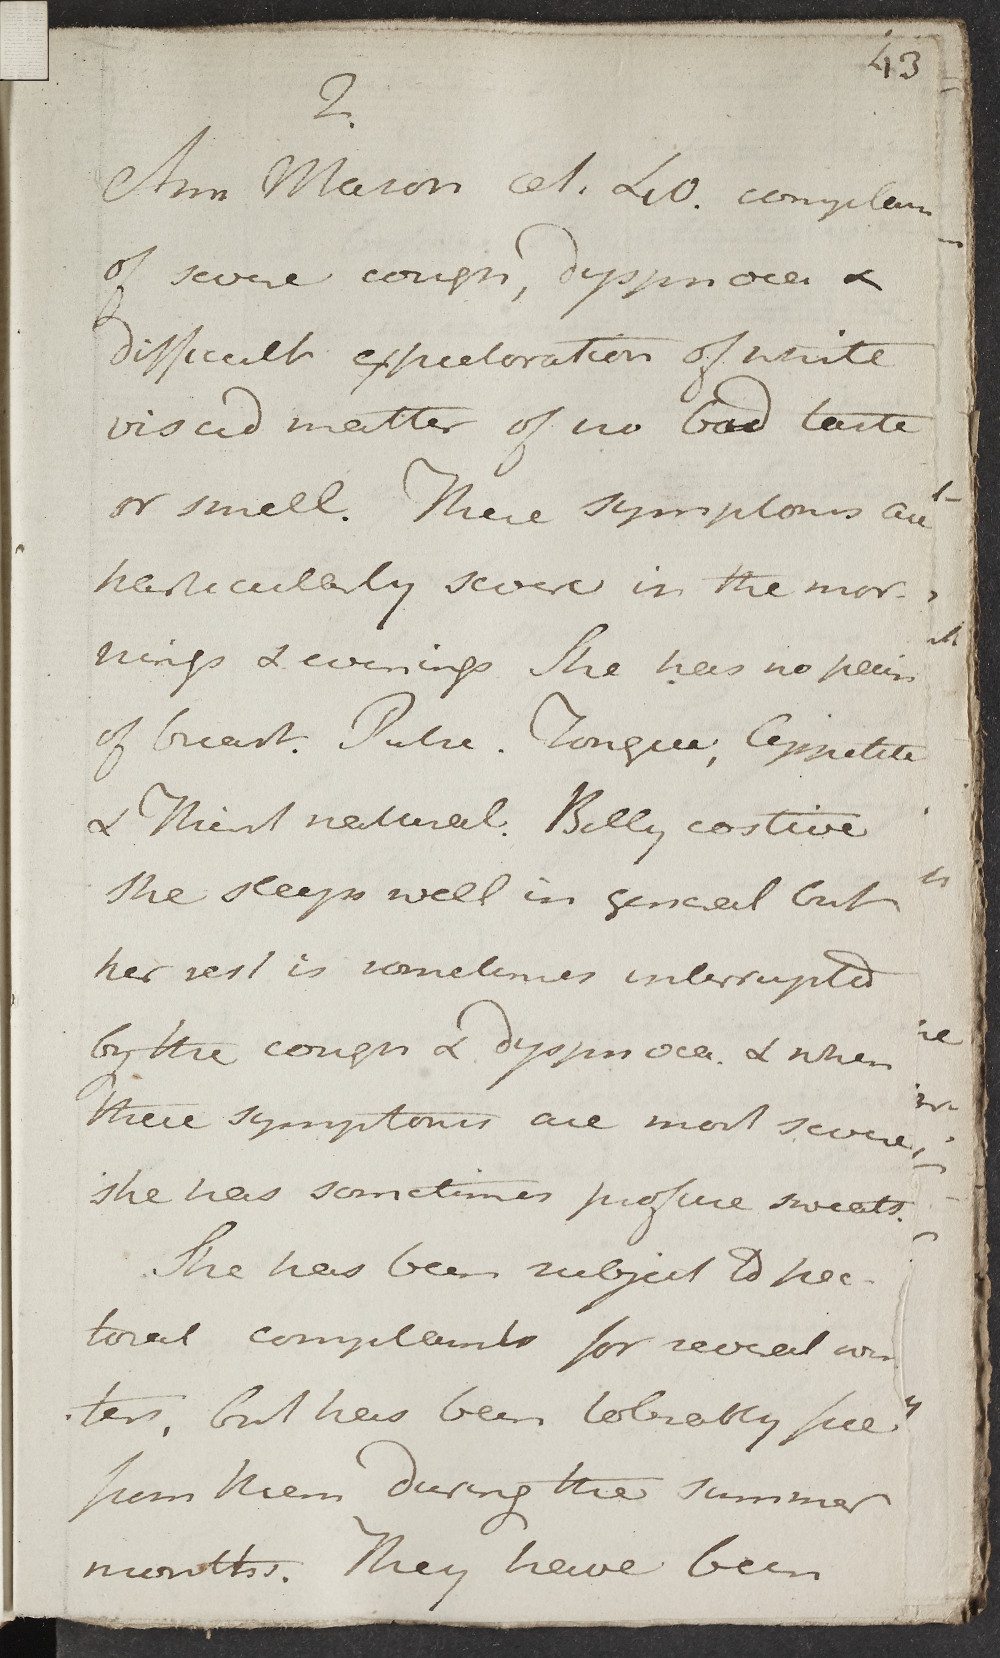 43
2.
Ann Mason aet. 40. complain
of severe cough, dyspnoea &
difficult expectoration of white
viscid matter of no bad taste
or smell. These symptoms are
particularly severe in the mor-
nings & evenings She has no pain
of breast. Pulse. Tongue, Appetite
& Thirst natural. Belly costive
She sleeps well in general but
her rest is sometimes interrupted
by the cough & dyspnoea. & when
these symptoms are most severe,
she has sometimes profuse sweats.
She has been subject to pec-
toral complaints for several win
ters, but has been tolerably free
from them during the summer
months. They have been